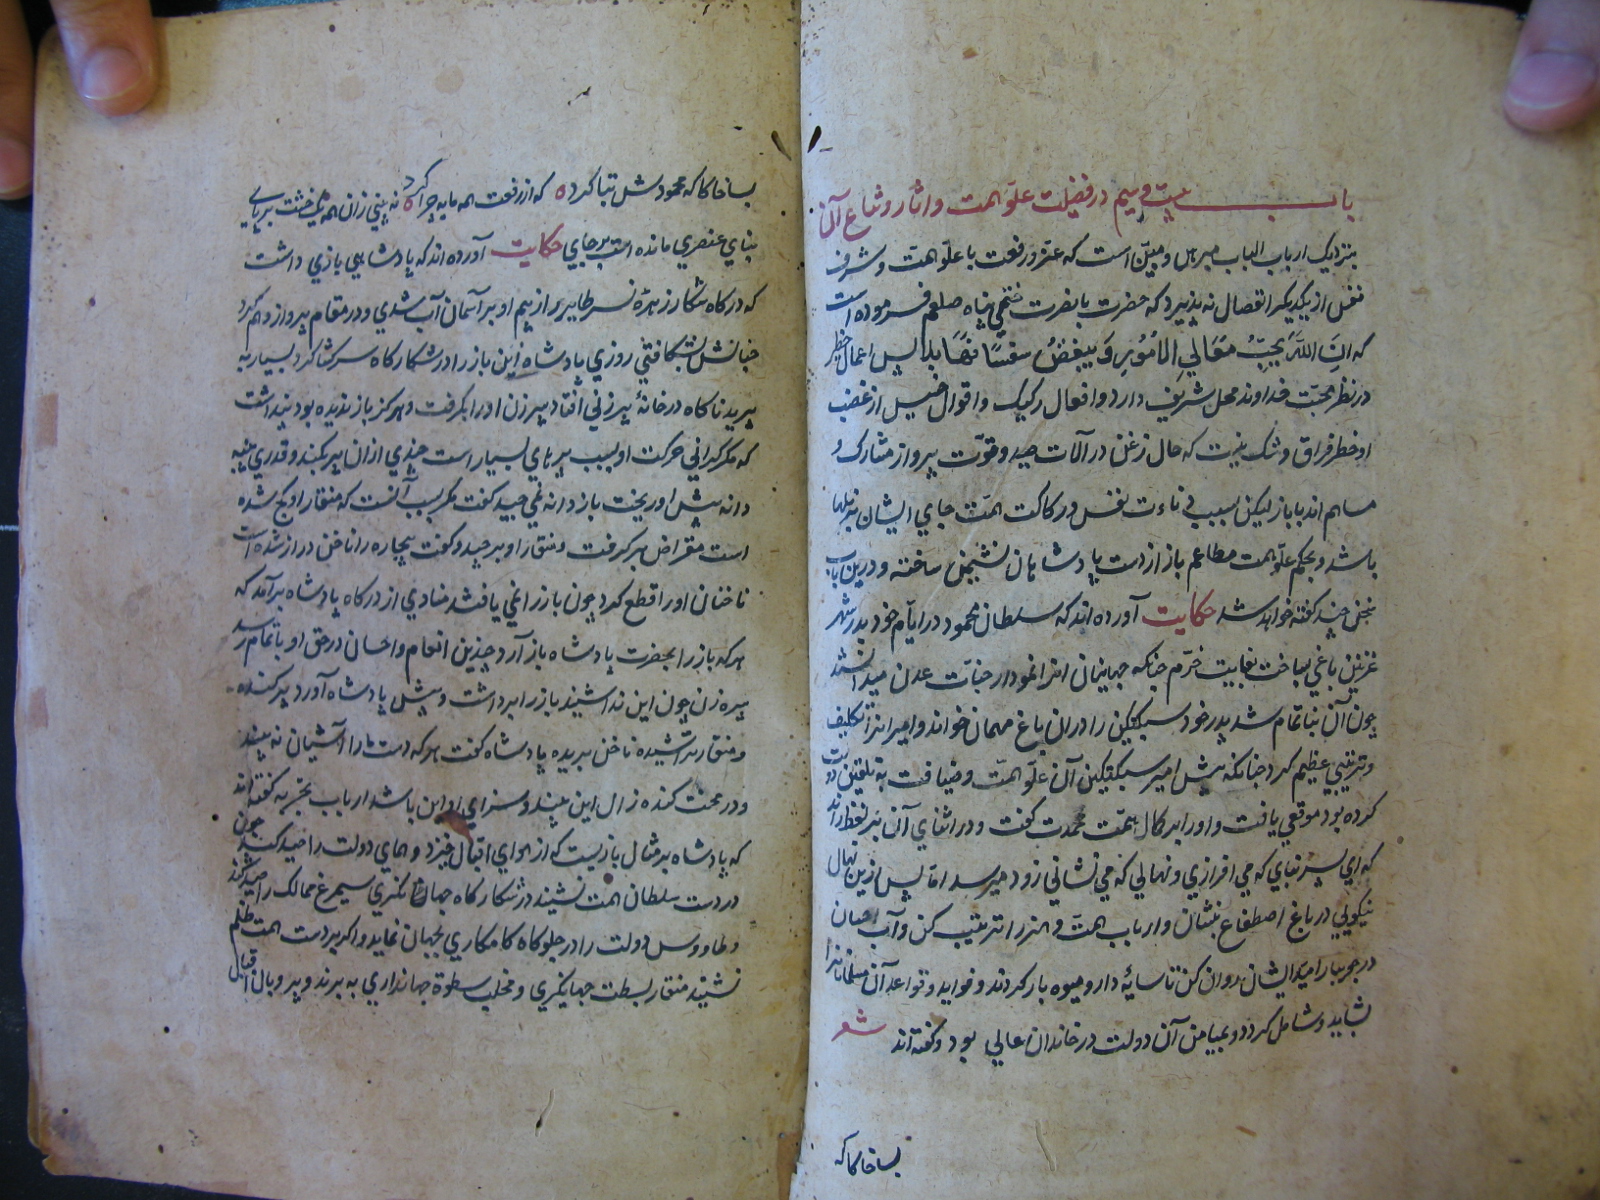 باب بیست و سیم در فضیلت علوّ همت و آثار و شاع آن
بنزدیک ارباب الباب مبرهن و مبیّن است که عزّ و رفعت با علوّ همت و شرف
نفس از یکدیگر انفصال نه پذیرد که حضرت با نصرت ختمی پناه صلعم فرموده است
که اِنَّ اللَّهَ یُحِبُّ مَعَالِي الاُمُورِ وَ یَبغِضُ سفسَافهَا پس اعمال
در نظر محبّت خداوند محل شریف دارد و افعال رکیک و اقوال خسیس از غضب
او خطر فراق و شک نیست که حال زغن در آلات صید و قوّت پرواز مشارک و
مساهم اند با باز لیکن بسبب دناءت نفس و رکاکت همّت جای ایشان مزبلها
باشد و بحکم علوّ همت مطاعم باز از دست پادشاهان نشیمن ساخته و درین باب
سخنی چند گفته خواهد شد حکایت آورده اند که سلطان محمود در ایّام خود بدر شهر
غزنین باغی بساخت بغایت خرّم چنانکه جهانیان انرا نمودار جنّات عدن میدانستند
چون آن بنا تمام شد پدر خود سبکتکین را در ان باغ مهمان خواند و امیر انرا تکلیف
و ترتیبی عظیم کرد چنانکه پیش امیر سبکتکین آن علوّ همّت و ضیافت
کرده بود موقعی یافت و او را بر کمال همّت محمدت گفت و در اثنای آن بر لفظ راند
که ای پسر بنای که می افرازی و نهالی که می نشانی زود میرسد اما پس ازین نهال
نیکویی در باغ اصطناع بنشان و ارباب همّت و هنر را تربیت کن و آب احسان
در جویبار امید ایشان روان کن تا سایه دار و میوه بار کردند و فواید و قواعد آن مسلمانانرا
بشاید و شامل کردد و بمیامن آن دولت در خاندان عالی بود و گفته اند شعر
بسا خاکا که
بسا خاکا که محمودش بنا کرده که از رفعت همه مایه چرا کرد ه نه بینی زان همه یک خشت بر پای
بنای عنصری مانده است بر جای حکایت آورده اند که پادشاهی بازی داشت
که در کاه شکار زهرهٔ نسر طایر از بیم او بر آسمان آب شدی و در مقام پرواز وهم کرد
جنابش نشکافتی روزی پادشاه این باز را در شکارکاه سر کشاد کرد بسیار به
پرید ناکاه در خانهٔ پیرزنی افتاد پیرزن او را بکرفت و هرکز باز ندیده بود پنداشت
که مکر کرانی حرکت او بسبب پرهای بسیار است چندی از ان پر بکند و قدری پنبه
دانه پیش او ریخت باز دانه نمی چید گفت مکر بسبب آنست که منقار او کج شده
است مقراض بر کرفت و منقار او بر چید و گفت بیچاره را ناخن دراز شده است
ناختان او را قطع کرد چون باز را نمی یافتند منادی از درکاه پادشاه برآمد که
هر که باز را بحضرت پادشاه باز آرد چندین انعام و احسان در حق او باتمام رسد
پیره زن چون این ندا شنید باز را برداشت و پیش پادشاه آورد پر کنده
و منقار تراشیده ناخن بریده پادشاه گفت هر که دست ما را آشیان نه پسندد
و در محنت کنده زال این بیند و سزای او این باشد ارباب تجربه گفته اند
که پادشاه بر مثال بازیست که از هوای اقبال خیزد و همای دولت را صید کند چون
در دست سلطان همت نشیند در شکارکاه جهان کیری سیمرغ ممالک را صید کند
و طاووس دولت را در جلوکاه کامکاری بجهان نماید و اکر بر دست همت ظلم
نشیند منقار بسطت جهانکیری و مخلب سطوة جهانداری به برند و پر و بال اقبال